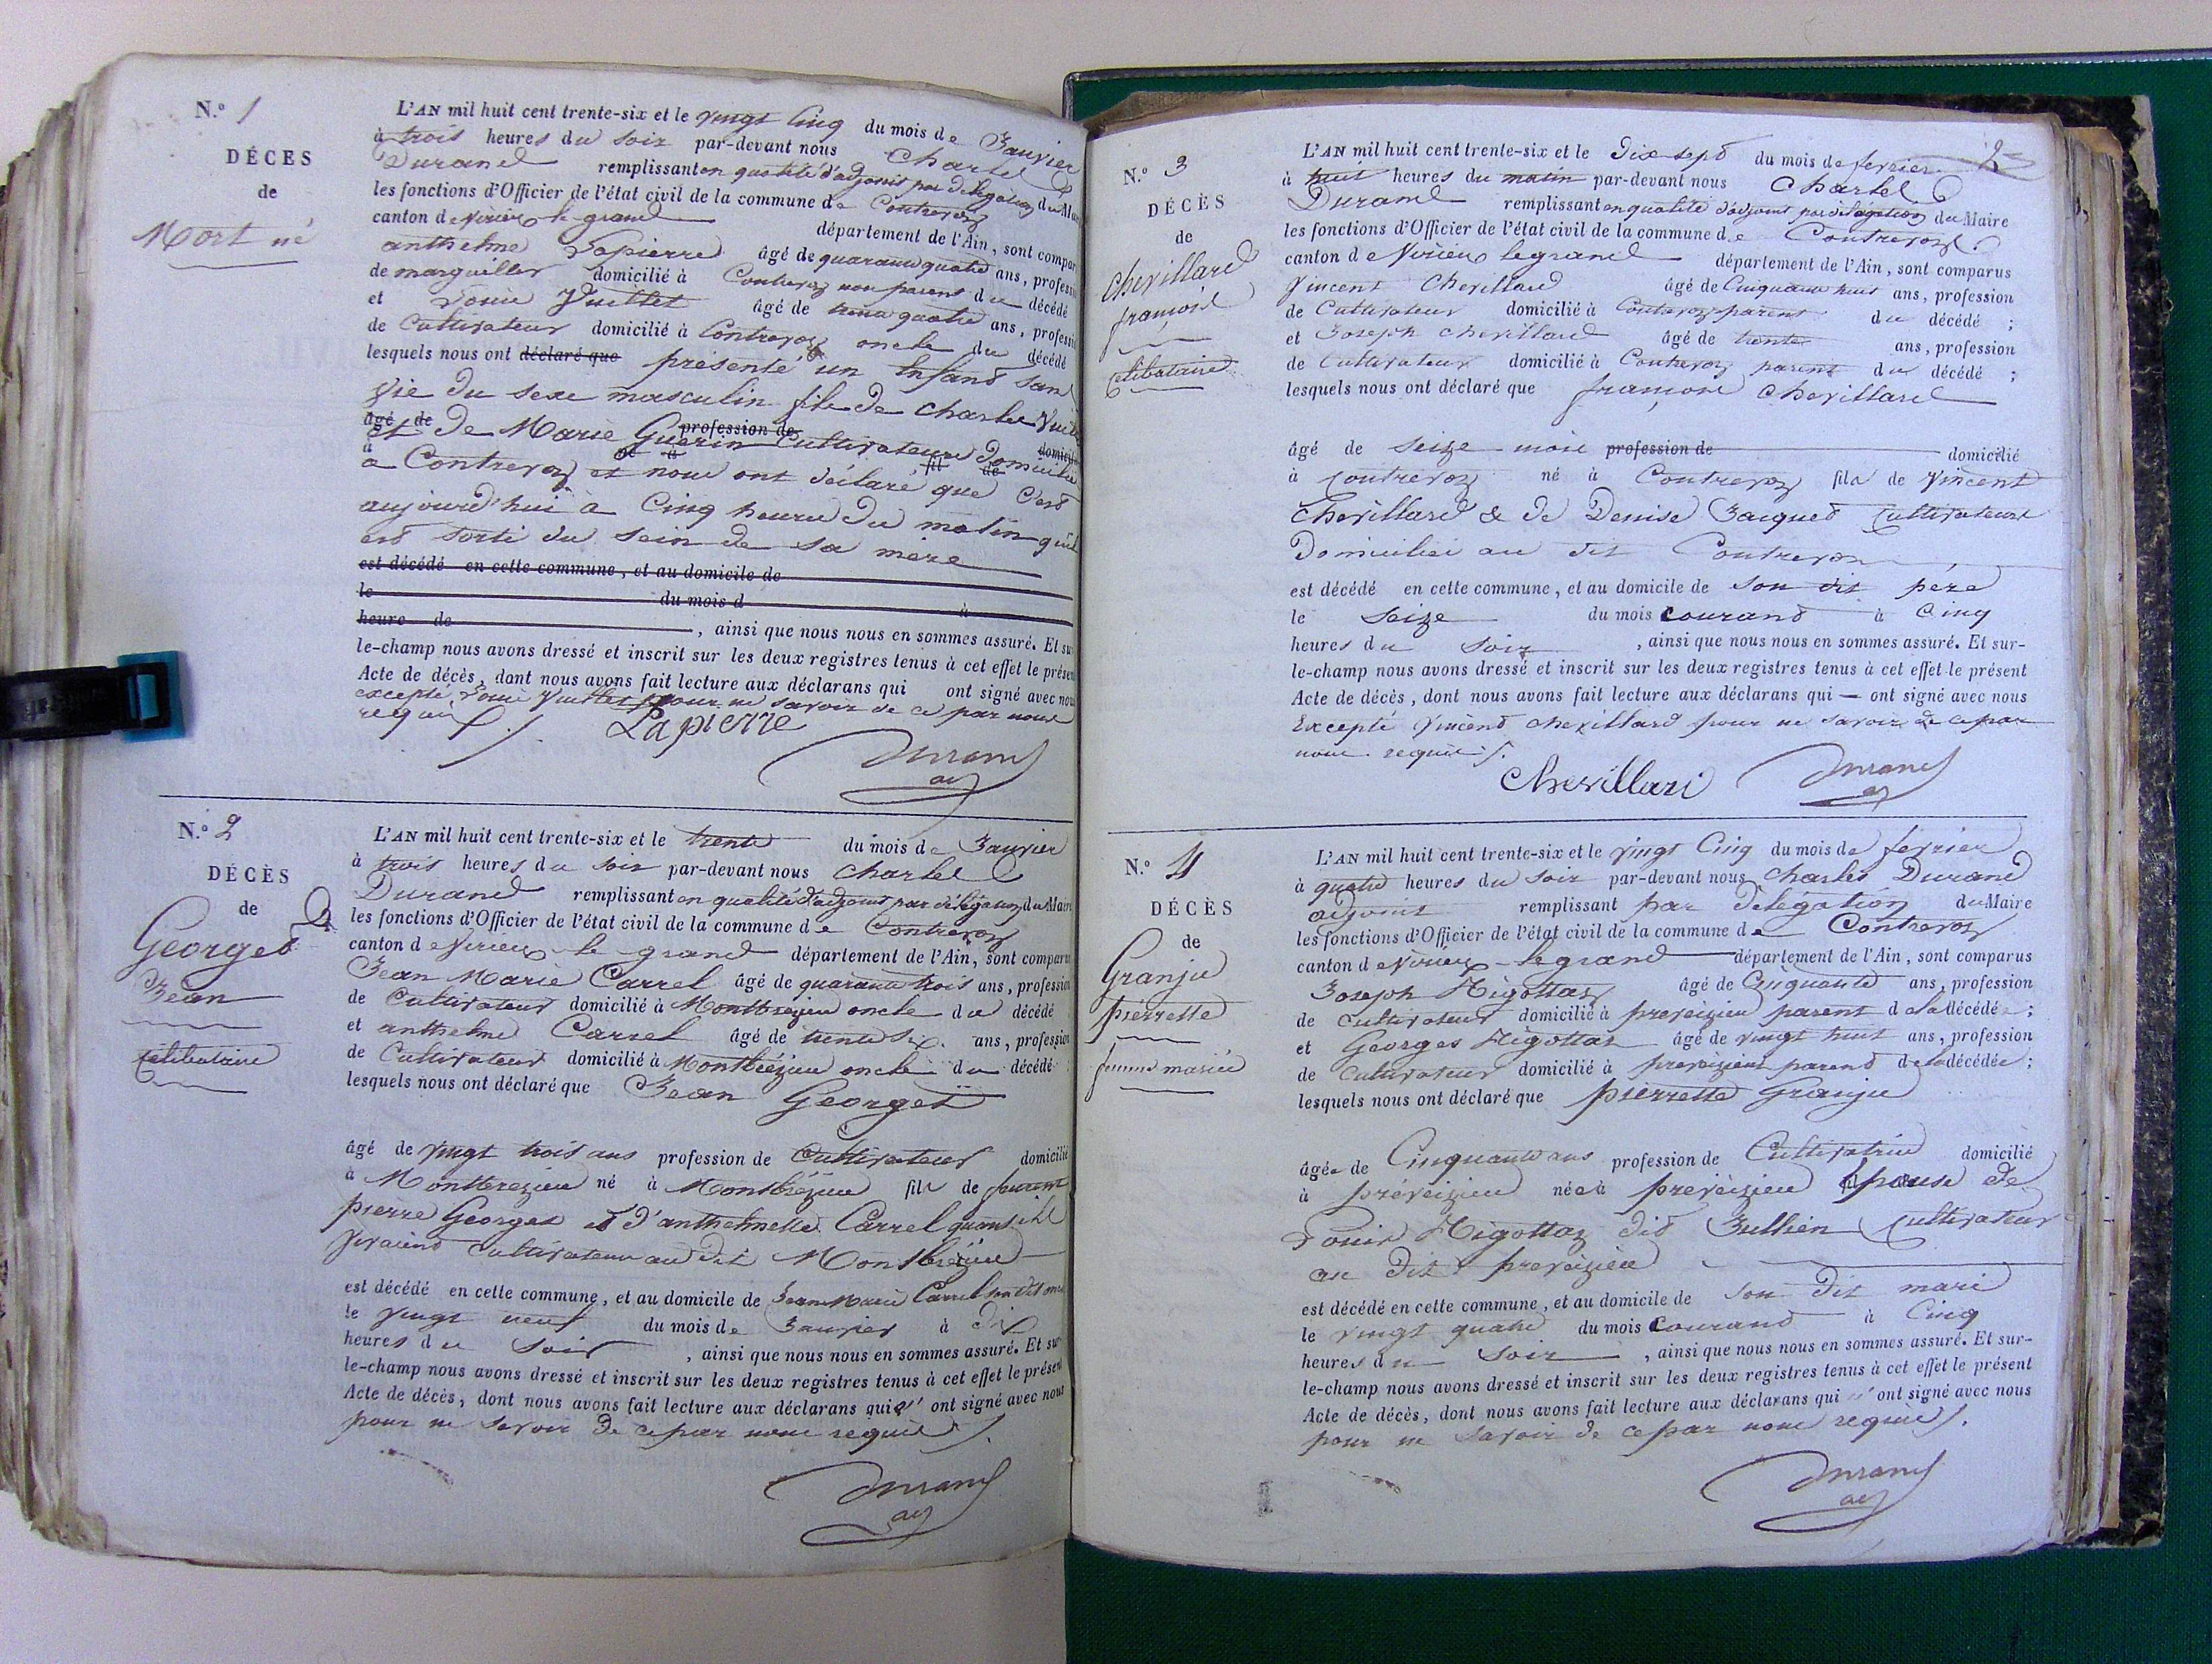 N.º 1
DÉCES
de
Mort né
L'AN mil huit cent trente-six et le vingt cinq du mois de Janvier
à trois heures du soir par-devant nous Charles
Durand remplissant en qualité d'adjoint par délégation du Maire
les fonctions d'Officier de l'état civil de la commune de Contrevoz
canton de Virieu le grand département de l'Ain, sont compar
anthelme Lapierre âgé de quarante quatre ans, profess
de marguiller domicilié à Contrevoz non parent du décédé
et Louis Vuillet âgé de trente quatre ans, professi
de Cultivateur domicilié à Contrevoz oncle du décédé
lesquels nous ont déclaré que présenté un enfant sans
vie du sexe masculin fils de Charles Vuil
âgé de profession de domicil
et de Marie Guérin Cultivateurs domiciliés
à né à fil de
a Contrevoz et nous ont déclaré que c'est
aujourd'hui a Cinq heures du matin qu'il
est sorti du sein de sa mère
est décédé en cette commune, et au domicile de
le du mois d à
heure de , ainsi que nous nous en sommes assuré. Et su
le-champ nous avons dressé et inscrit sur les deux registres tenus à cet effet le présen
Acte de décès, dont nous avons fait lecture aux déclarans qui ont signé avec nou
excepté Louis Vuillet pour ne savoir de ce par nous
requis ./.
Lapierre
Durand
adj
N.º 2
DÉCÈS
de
Georges
Jean
Célibataire
L'AN mil huit cent trente-six et le trente du mois de Janvier
à trois heures du soir par-devant nous Charles
Durand remplissant en qualité d'adjoint par délégation du Maire
les fonctions d'Officier de l'état civil de la commune de Contrevoz
canton de Virieu le grand département de l'Ain, sont comparu
Jean Marie Carrel âgé de quarante trois ans, profession
de Cultivateur domicilié à Montbrézieu oncle du décédé
et anthelme Carrel âgé de trente six ans, profession
de Cultivateur domicilié à Montbrézieu oncle du décédé
lesquels nous ont déclaré que Jean Georges
âgé de vingt trois ans profession de Cultivateur domicilié
à Montbrezieu né à Montbrézieu fils de
pierre Georges et d'anthelmette Carrel quand ils
vivaient cultivateurs au dit Montbrézieu
est décédé en cette commune, et au domicile de Jean Marie Carrel son dit oncle
le vingt neuf du mois de Janvier à dix
heures du soir , ainsi que nous nous en sommes assuré. Et su
le-champ nous avons dressé et inscrit sur les deux registres tenus à cet effet le présent
Acte de décès, dont nous avons fait lecture aux déclarans qui n' ont signé avec nous
pour ne savoir de ce par nous requis ./.
Durand
adj
2
N.º 3
DÉCÈS
de
Chevillard
françois
célibataire
L'AN mil huit cent trente-six et le Dix sept du mois de fevrier
à huit heures du matin par-devant nous Charles
Durand remplissant en qualité d'adjoint par délégation du Maire
les fonctions d'Officier de l'état civil de la commune de Contrevoz
canton de Virieu legrand département de l'Ain, sont comparus
Vincent Chevillard âgé de Cinquante huit ans, profession
de Cultivateur domicilié à Contrevoz parent du décédé ;
et Joseph Chevillard âgé de trente ans, profession
de Cultivateur domicilié à Contrevoz parent du décédé ;
lesquels nous ont déclaré que françois Chevillard
âgé de seize mois profession de domicilié
à Contrevoz né à Contrevoz fils de Vincent
Chevillard & de Denise Jacques Cultivateurs
Domiciliés au dit Contrevoz
est décédé en cette commune, et au domicile de son dit père
le seize du mois courant à Cinq
heures du soir , ainsi que nous nous en sommes assuré. Et sur-
le-champ nous avons dressé et inscrit sur les deux registres tenus à cet effet le présent
Acte de décès, dont nous avons fait lecture aux déclarans qui — ont signé avec nous
Excepté Vincent chevillard pour ne savoir de ce par
nous requis ./.
Chevillard
Durand
adj
N.º 4
DÉCÈS
de
Granju
pierrette
femme mariée
L'AN mil huit cent trente-six et le vingt Cinq du mois de fevrier
à quatre heures du soir par-devant nous Charles Durand
adjoint remplissant par délégation du Maire
les fonctions d'Officier de l'état civil de la commune de Contrevoz
canton de Virieu legrand département de l'Ain, sont comparus
Joseph Migottaz âgé de Cinquante ans, profession
de cultivateur domicilié à preveizieu parent de la décédée ;
et Georges Migottaz âgé de vingt huit ans, profession
de Cultivateur domicilié à preveizieu parent de la décédée ;
lesquels nous ont déclaré que pierrette Granju
âgée de Cinquante ans profession de Cultivatrice domicilié
à préveizieu née à preveizieu épouse de
Louis Migottaz dit Jullien Cultivateur
au dit preveizieu
est décédé en cette commune, et au domicile de son dit mari
le vingt quatre du mois courant à Cinq
heures du soir , ainsi que nous nous en sommes assuré. Et sur-
le-champ nous avons dressé et inscrit sur les deux registres tenus à cet effet le présent
Acte de décès, dont nous avons fait lecture aux déclarans qui n' ont signé avec nous
pour ne savoir de ce par nous requis ./.
Durand
adj